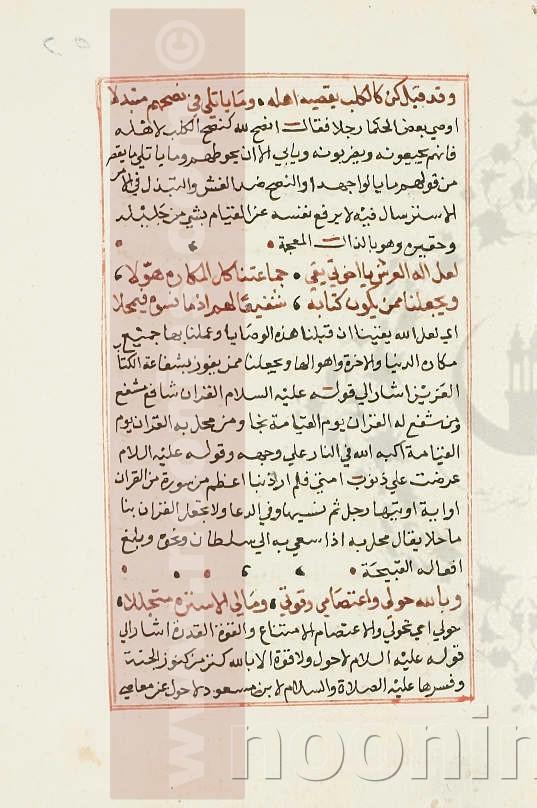 وقد قيل كن كالكلب يقصيه اهله ، وما ياتلي في نصحهم متبدلا
اوصي بعض الحكما رجلا فقال انصح لله كنصح الكلب لاهله
فانهم يجيعونه ويضربونه ويابي الا ان يحوطهم وما ياتلي ما يقصر
من قولهم ما يالوا جهدا والنصح ضد الغش والتبذل في الامر
الاسترسال فيه لا يرفع نفسه عن القيام بشي من جليله
وحقيره وهو بالذال المعجمة
لعل اله العرش يا اخوتي يقي ، جماعتنا كل المكاره هولا
ويجعلنا ممن يكون كتابه ، شفيعا لهم اذ ما نسوه فيمحلا
اي لعل الله يقينا ان قبلنا هذه الوصايا وعملنا بها جميع
مكاره الدنيا والاخرة واهوالها ويجعلنا ممن يفوز بشفاعة الكتاب
العزيز اشار الي قوله عليه السلام القران شافع مشفع
ومن شفع له القران يوم القيامة نجا ومن محل به القران يوم
القيامة اكبه الله في النار علي وجهه وقوله عليه السلام
عرضت علي ذنوب امتي فلم ار ذنبا اعظم من سورة من القران
او اية اوتيها رجل ثم نسيها وفي الدعا ولا تجعل القران بنا
ماحلا يقال محل به اذا سعي به الي سلطان ونحوه وبلغ
افعاله القبيحة
وبالله حولي واعتصامي وقوتي ، ومالي الا ستره متجللا
حولي اي تحولي والاعتصام الامتناع والقوة القدرة اشار الي
قوله عليه السلام لا حول ولا قوة الا بالله كنز من كنوز الجنة
وفسرها عليه الصلاة والسلام لابن مسعود لا حول عن معاصي
www.noonin
noonin